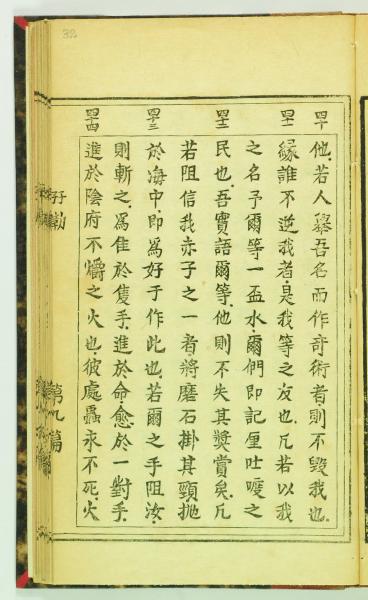 32
四十 他.若人舉吾名而作奇術者則不毀我也.
四十一 緣誰不逆我者.是我等之友也.凡若以我
之名予爾等一盃水.爾們即記厘吐嗄之
四十二 民也.吾實語爾等.他則不失其獎賞矣.凡
若阻信我赤子之一者將磨石掛其頸拋
四十三 於海中.即為好于作此也.若爾之手阻汝.
則斬之.為佳於隻手.進於命愈於一對手.
四十四 進於陰府不爝之火也.彼處蟲永不死.火
第九篇